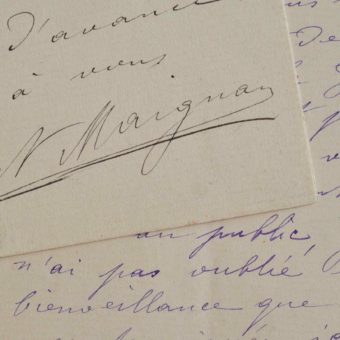 d'avance
à vous
Maignan
De
au public,
n'ai pas oublié
bienveillance que